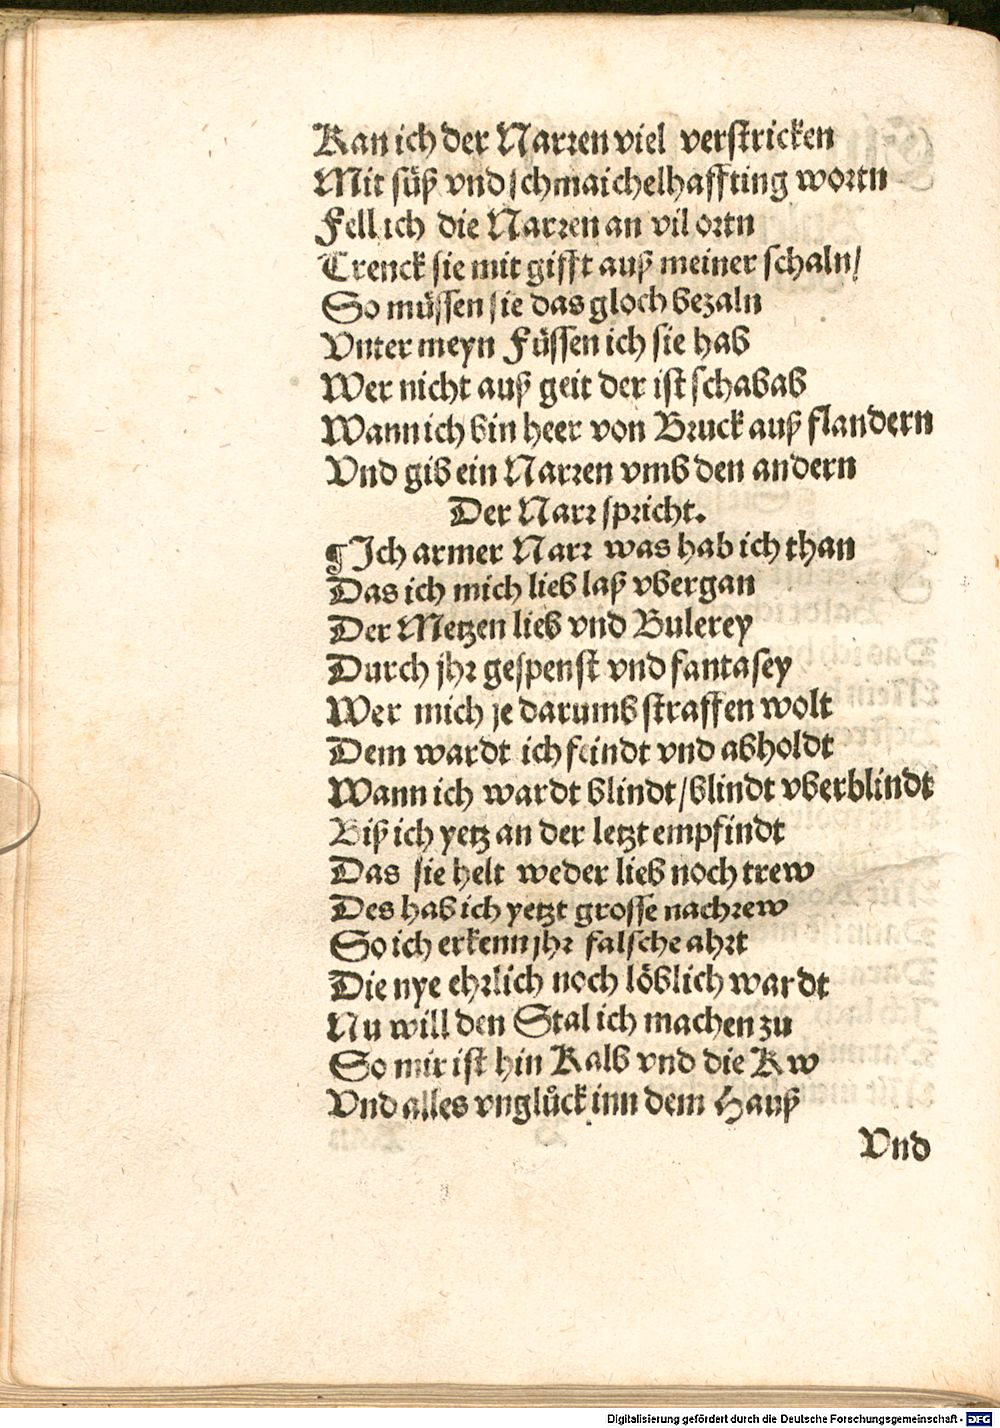 Kan ich der Narꝛen viel verstricken
Mit süß vnd schmaichelhaffting woꝛtn
Fell ich die Narꝛen an vil oꝛtn
Trenck sie mit gifft auß meiner schaln/
So müssen sie das gloch bezaln
Vnter meyn Füssen ich sie hab
Wer nicht auß geit der ist schabab
Wann ich bin heer von Bꝛuck auß flandern
Vnd gib ein Narꝛen vmb den andern
Der Narꝛ spꝛicht.
¶Ich armer Narꝛ was hab ich than
Das ich mich lieb laß vbergan
Der Metzen lieb vnd Bulerey
Durch jhꝛ gespenst vnd fantasey
Wer mich je darumb straffen wolt
Dem wardt ich feindt vnd abholdt
Wann ich wardt blindt/blindt vberblindt
Biß ich yetz an der letzt empfindt
Das sie helt weder lieb noch trew
Des hab ich yetzt grosse nachꝛew
So ich erkenn jhꝛ falsche ahrt
Die nye ehꝛlich noch löblich wardt
Nu will den Stal ich machen zu
So mir ist hin Kalb vnd die Kw
Vnd alles vnglůck inn dem Hauß
Vnd
Digitalisierung gefördert durch die Deutsche Forschungsgemeinschaft - DFG